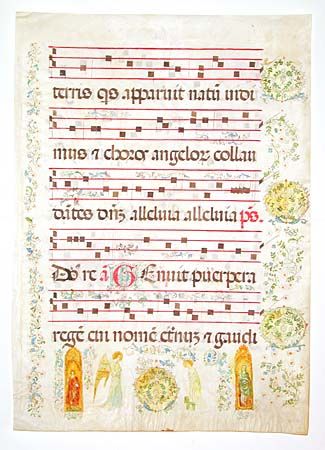 terris q̄s apparuit natū vidi
mus & choros angelorꝝ collau
dātes dn̄ʒ alleluia alleluia p̄s.
Dō re ā Genuit puerpera
regē cui nomē et̄nuʒ & gaudi